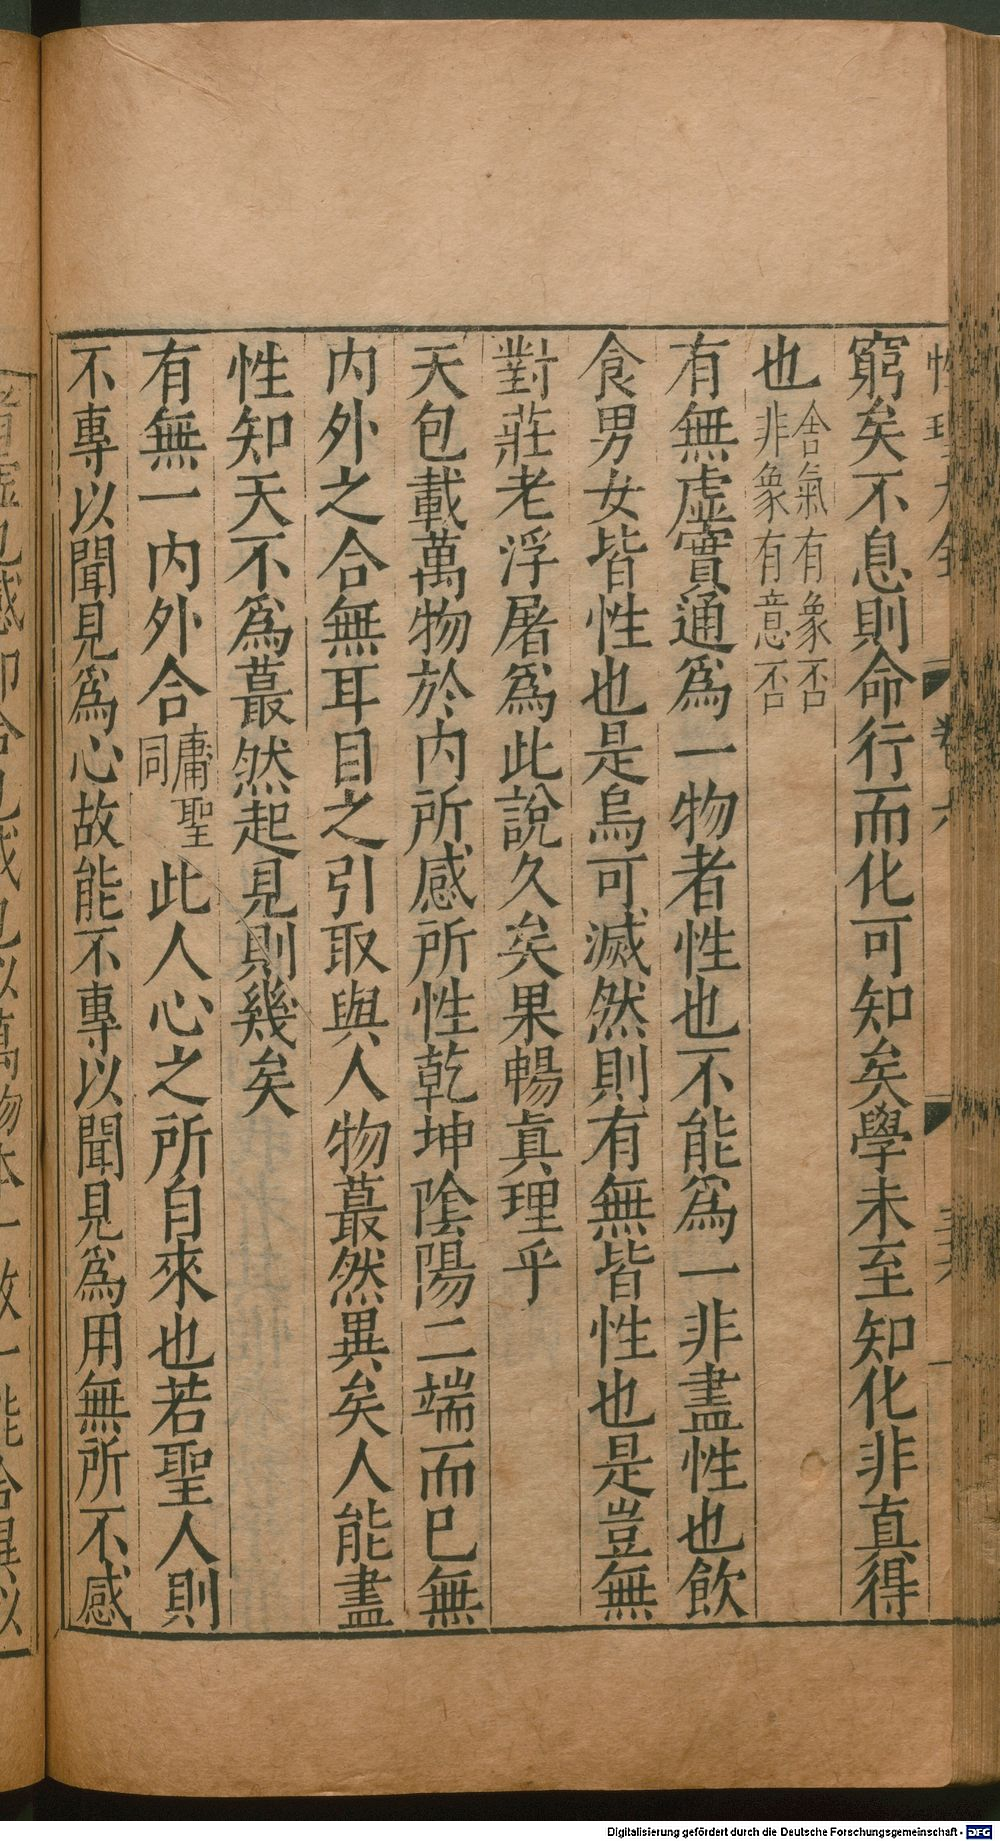 窮矣不息則命行而化可知矣學未至知化非真得
也舍氣有象否
非象有意否
有無虛實通爲一物者性也不能爲一非盡性也飲
食男女皆性也是烏可滅然則有無皆性也是豈無
對莊老浮屠爲此說久矣果暢真理乎
天包載萬物於內所感所性乾坤陰陽二端而已無
內外之合無耳目之引取與人物蕞然異矣人能盡
性知天不爲蕞然起見則幾矣
有無一內外合庸聖
同此人心之所自來也若聖人則
不專以聞見爲心故能不專以聞見爲用無所不感
Digitalisierung gefördert durch die Deutsche Forschungsgemeinschaft - DFG